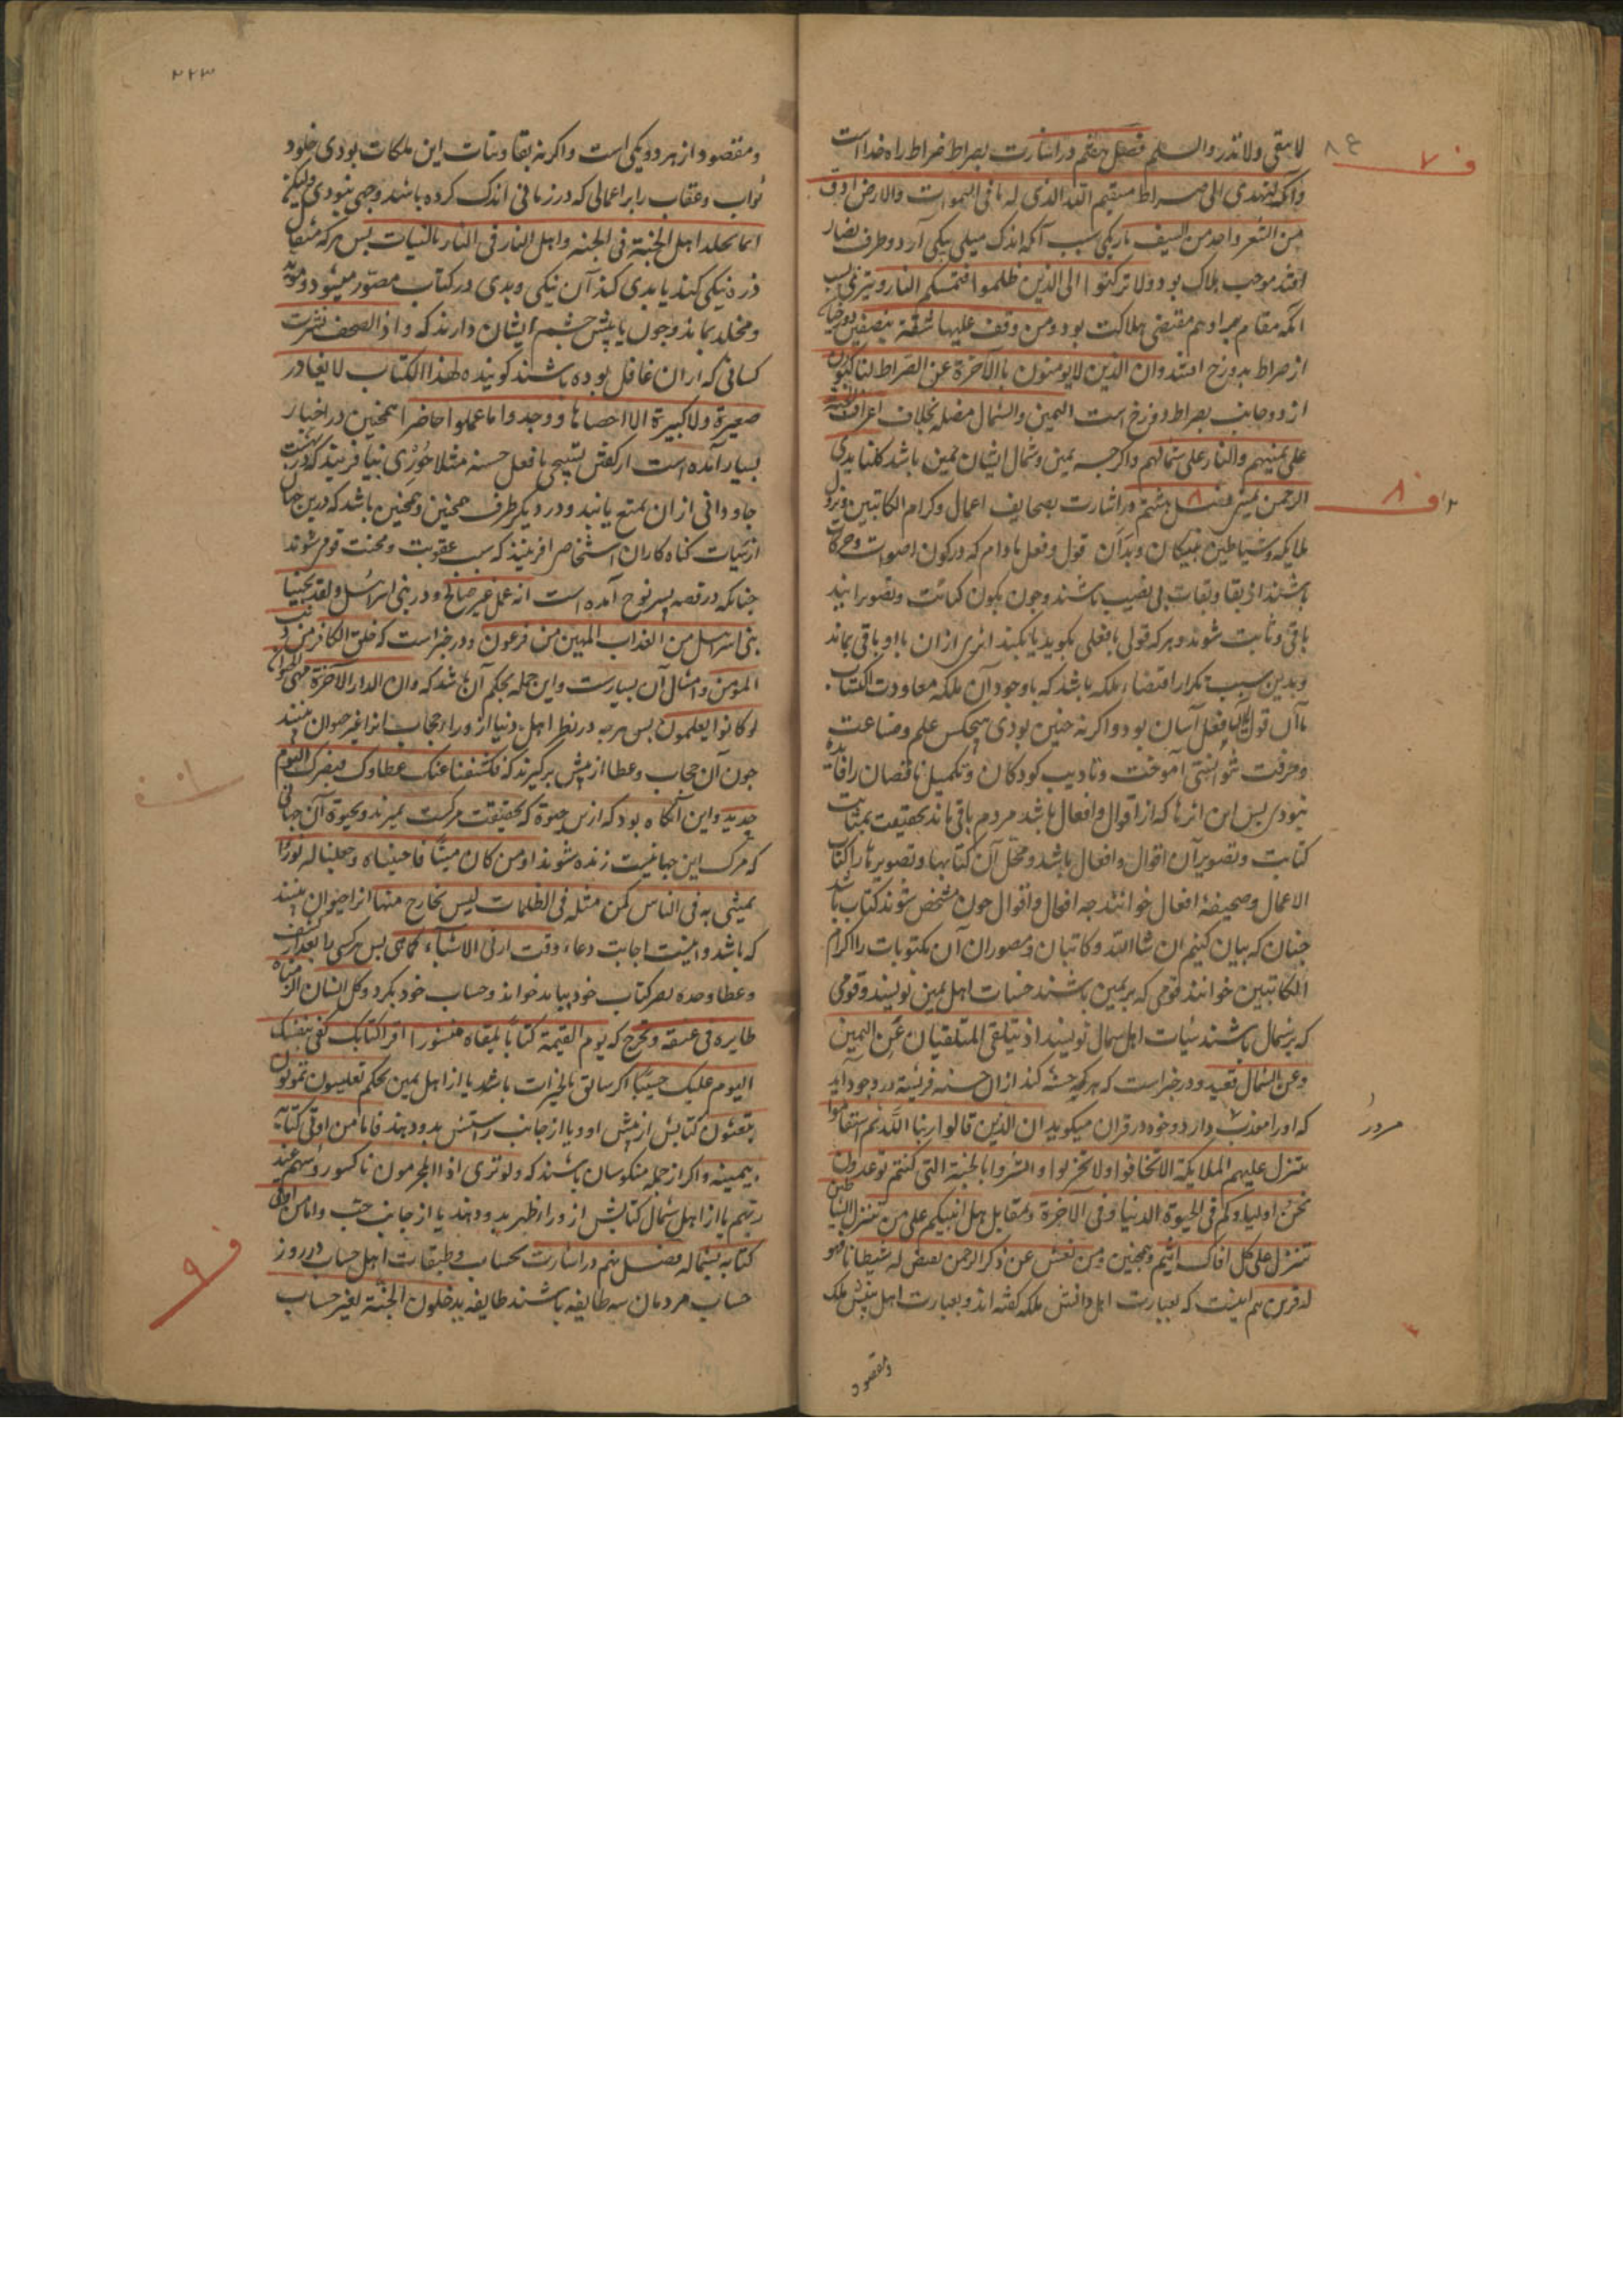 لاتبقی ولاتذر والسلم فصل هفتم در اشارت بصراط صراط راه خداست
وانک لتهدی الی صراط مستقیم الله الذی له ما فی السموات والارض ادق
من الشعر واحد من السیف باریکی سبب آنکه اندک میلی بیکی از دو طرف تضاد
افتد موجب هلاک بود ولا ترکنوا الی الذین ظلموا فتمسکم النار وتیزی بسبب
آنکه مقام بر او هم مقتضی هلاکت بود ومن وقف علیها شقته بنصفین دوزخیان
از صراط بدوزخ افتند وان الذین لایومنون بالاخرة عن الصراط لناکبون
از دو جانب صراط دوزخ است الیمین والشمال مضله بخلاف اعراف الجنة
علی یمینهم والنار علی شمالهم واکرچه یمین وشمال ایشان یمین باشد کلتا یدی
الرحمن یمین فصل هشتم در اشارت بصحایف اعمال وکرام الکاتبین ونزول
ملایکه وشیاطین بر نیکان وبدان قول وفعل مادام که در کون اصوات وحرکات
باشند از بقا وثبات بی نصیب باشند وچون بکون کتابت وتصویر آیند
باقی وثابت شوند وهرکه قولی یا فعلی بکوید یا بکند اثری از ان با او باقی بماند
وبدین سبب تکرار اقتضاء ملکه باشد که با وجود آن ملکه معاودت اکتساب
با آن قول یا فعل آسان بود واکر نه چنین بودی هیچکس علم وصناعت
وحرفت نتوانستی آموخت وتادیب کودکان وتکمیل ناقصان را فایده
نبودی پس این اثرها که از اقوال وافعال باشد مردم باقی ماند بحقیقت بمثابت
کتابت وتصویر آن اقوال وافعال باشد ومحل آن کتابها وتصویرها را کتاب
الاعمال وصحیفه افعال خوانند چه افعال واقوال چون مشخص شوند کتاب باشد
چنان که بیان کنیم ان شاالله وکاتبان ومصوران آن مکتوبات را اکرام
الکاتبین خوانند قومی که بر یمین باشند حسنات اهل یمین نویسند وقومی
که بر شمال باشند سیئات اهل شمال نویسند اذ یتلقی المتلقیان عن الیمین
وعن الشمال قعید ودر خبر است که هر که حسنه کند از ان حسنه فریشته در وجود آید
که او را معذب دارد وخود در قران میکوید ان الذین قالوا ربنا الله ثم استقاموا
تتنزل علیهم الملایکة الا تخافوا ولا تحزنوا وابشروا بالجنة التی کنتم توعدون
نحن اولیاوکم فی الحیوة الدنیا وفی الاخرة وبمقابل هل انبیکم علی من تنزل الشیاطین
تنزل علی کل افاک اثیم وهمچنین ومن یعش عن ذکر الرحمن نقیض له شیطانا فهو
له قرین هم اینست که بعبارت اهل دانش ملکه کفته اند وبعبارت اهل بینش ملک
ومقصود
ف ۷
ف ۸
۲۲۳
ومقصود از هر دو یکی است واکر نه بقا وثبات این ملکات بودی خلود
ثواب وعقاب را بر اعمالی که در زمانی اندک کرده باشند وجهی نبودی ولیکن
انما یخلد اهل الجنة فی الجنة واهل النار فی النار بالنیات پس هر که مثقال
ذره نیکی کند یا بدی کند آن نیکی وبدی در کتاب مصور میشود ومؤبد
ومخلد بماند وچون با پیش چشم ایشان دارند که واذا الصحف نشرت
کسانی که از ان غافل بوده باشند کویند ما لهذا الکتاب لا یغادر
صغیرة ولا کبیرة الا احصاها ووجدوا ما عملوا حاضرا همچنین در اخبار
بسیار آمده است از کفتن تسبیحی یا فعل حسنه مثلا حوری بیافریند که در بهشت
جاودانی از ان تمتع یابند ودر دیکر طرف همچنین وهمچنین باشد که درین جهان
از سیئات کناه کاران اشخاص آفرینند که سبب عقوبت ومحنت قومی شوند
چنانکه در قصه پسر نوح آمده است انه عمل غیر صالح ودر بنی اسرائیل ولقد نجینا
بنی اسرائیل من العذاب المهین من فرعون ودر خبر است که خلق الکافر من ذنب
المومن وامثال آن بسیارست واین جمله بحکم آن باشد که وان الدار الاخرة لهی الحیوان
لو کانوا یعلمون پس هرچه در نظر اهل دنیا از وراء حجاب انرا غیر حیوان بینند
چون آن حجاب وغطا از پیش برکیرند که فکشفنا عنک غطاوک فبصرک الیوم
حدید واین آنکاه بود که ازین حیوة که بحقیقت مرکست بمیرند وبحیوة آن جهانی
که مرک این جهانیست زنده شوند اومن کان میتا فاحییناه وجعلنا له نورا
یمشی به فی الناس کمن مثله فی الظلمات لیس بخارج منها انرا حیوان بینند
که باشد واینست اجابت دعاء وقت ارنی الاشیاء کماهی پس هرکسی را بعد از کشف
وغطا وحده بصر کتاب خود بباید خواند وحساب خود بکرد وکل انسان الزمناه
طایره فی عنقه ونخرج له یوم القیمة کتابا یلقاه منشورا اقرا کتابک کفی بنفسک
الیوم علیک حسیبا اکر سابق بالخیرات باشد یا از اهل یمین بحکم تعیشون تموتون
تبعثون کتابش از پیش او ویا از جانب راستش بدو دهند فاما من اوتی کتابه
بیمینه واکر از جمله منکوسان باشند که ولو تری اذ المجرمون ناکسوا روسهم عند
ربهم یا از اهل شمال کتابش از وراء ظهر بدو دهند یا از جانب چپ واما من اوتی
کتابه بشماله فصل نهم در اشارت بحساب وطبقات اهل حساب در روز
حساب مردمان سه طایفه باشند طایفه یدخلون الجنة بغیر حساب
ف ۹